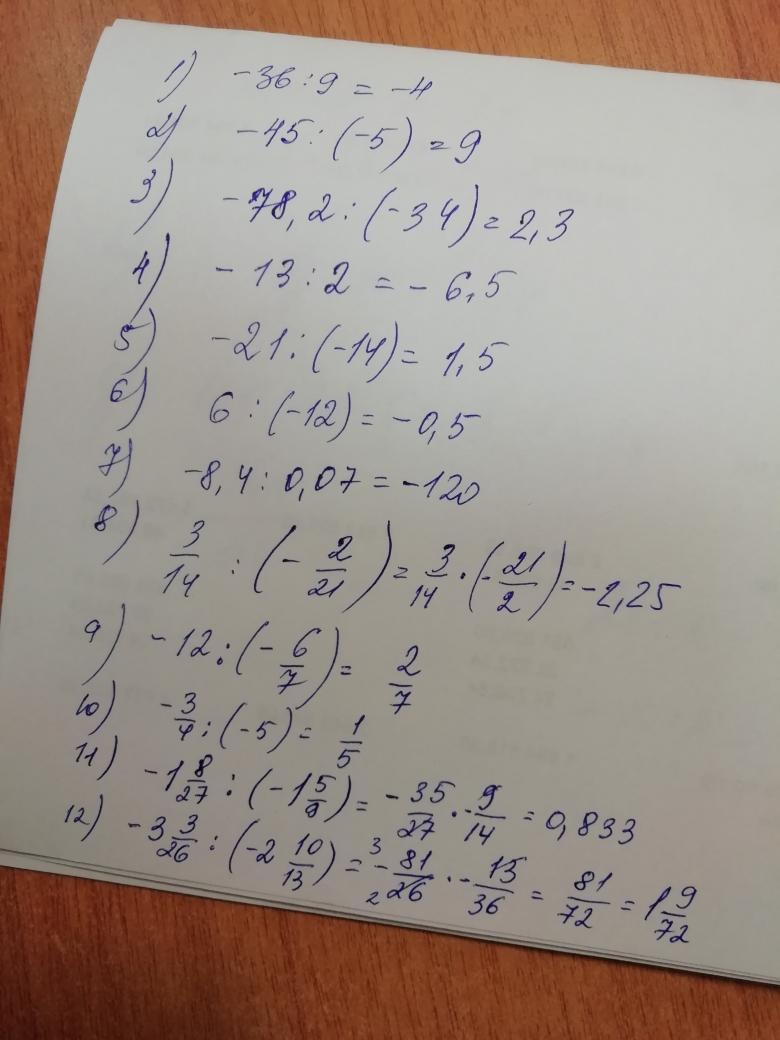 1) -36 : 9 = -4
2) -45 : (-5) = 9
3) -78,2 : (-34) = 2,3
4) -13 : 2 = -6,5
5) -21 : (-14) = 1,5
6) 6 : (-12) = -0,5
7) -8,4 : 0,07 = -120
8) 3/14 : (-2/21) = 3/14 · (-21/2) = -2,25
9) -12 : (-6/7) = 2/7
10) -3/4 : (-5) = 1/5
11) -1 8/27 : (-1 5/9) = -35/27 · -9/14 = 0,833
12) -3 3/26 : (-2 10/13) = 3 -81/26 2 · -13/36 = 81/72 = 1 9/72